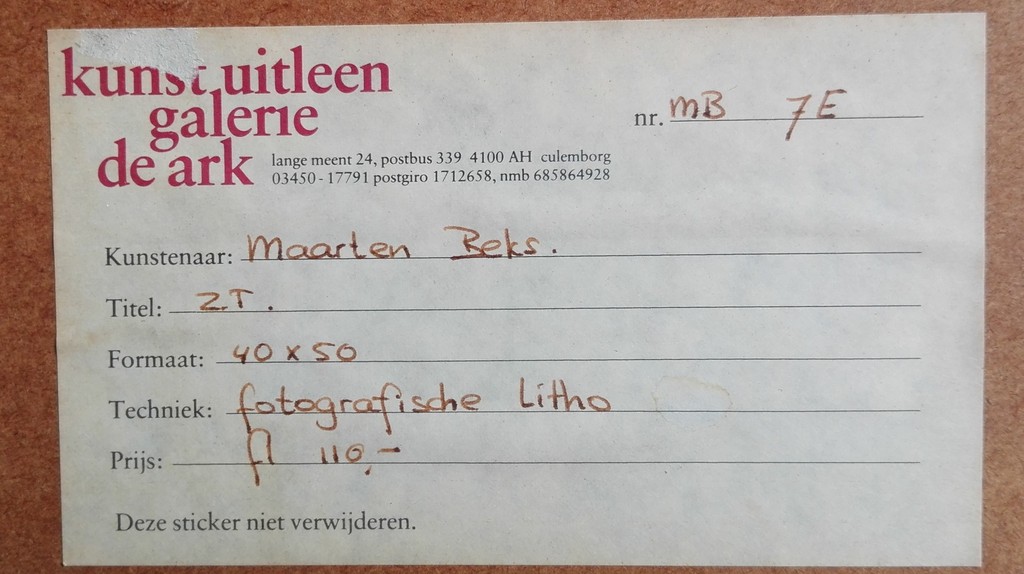 kunst uitleen
galerie
de ark
lange meent 24, postbus 339 4100 AH culemborg
03450-17791 postgiro 1712658, nmb 685864928
nr. MB 7E
Kunstenaar: Maarten Beks.
Titel: Z.T.
Formaat: 40 x 50
Techniek: fotografische Litho
Prijs: fl 110,-
Deze sticker niet verwijderen.